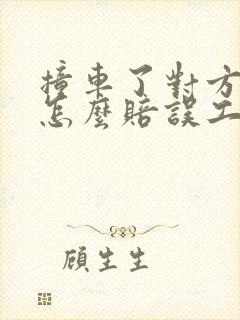 撞車了對方
怎麼賠誤工
顧生生